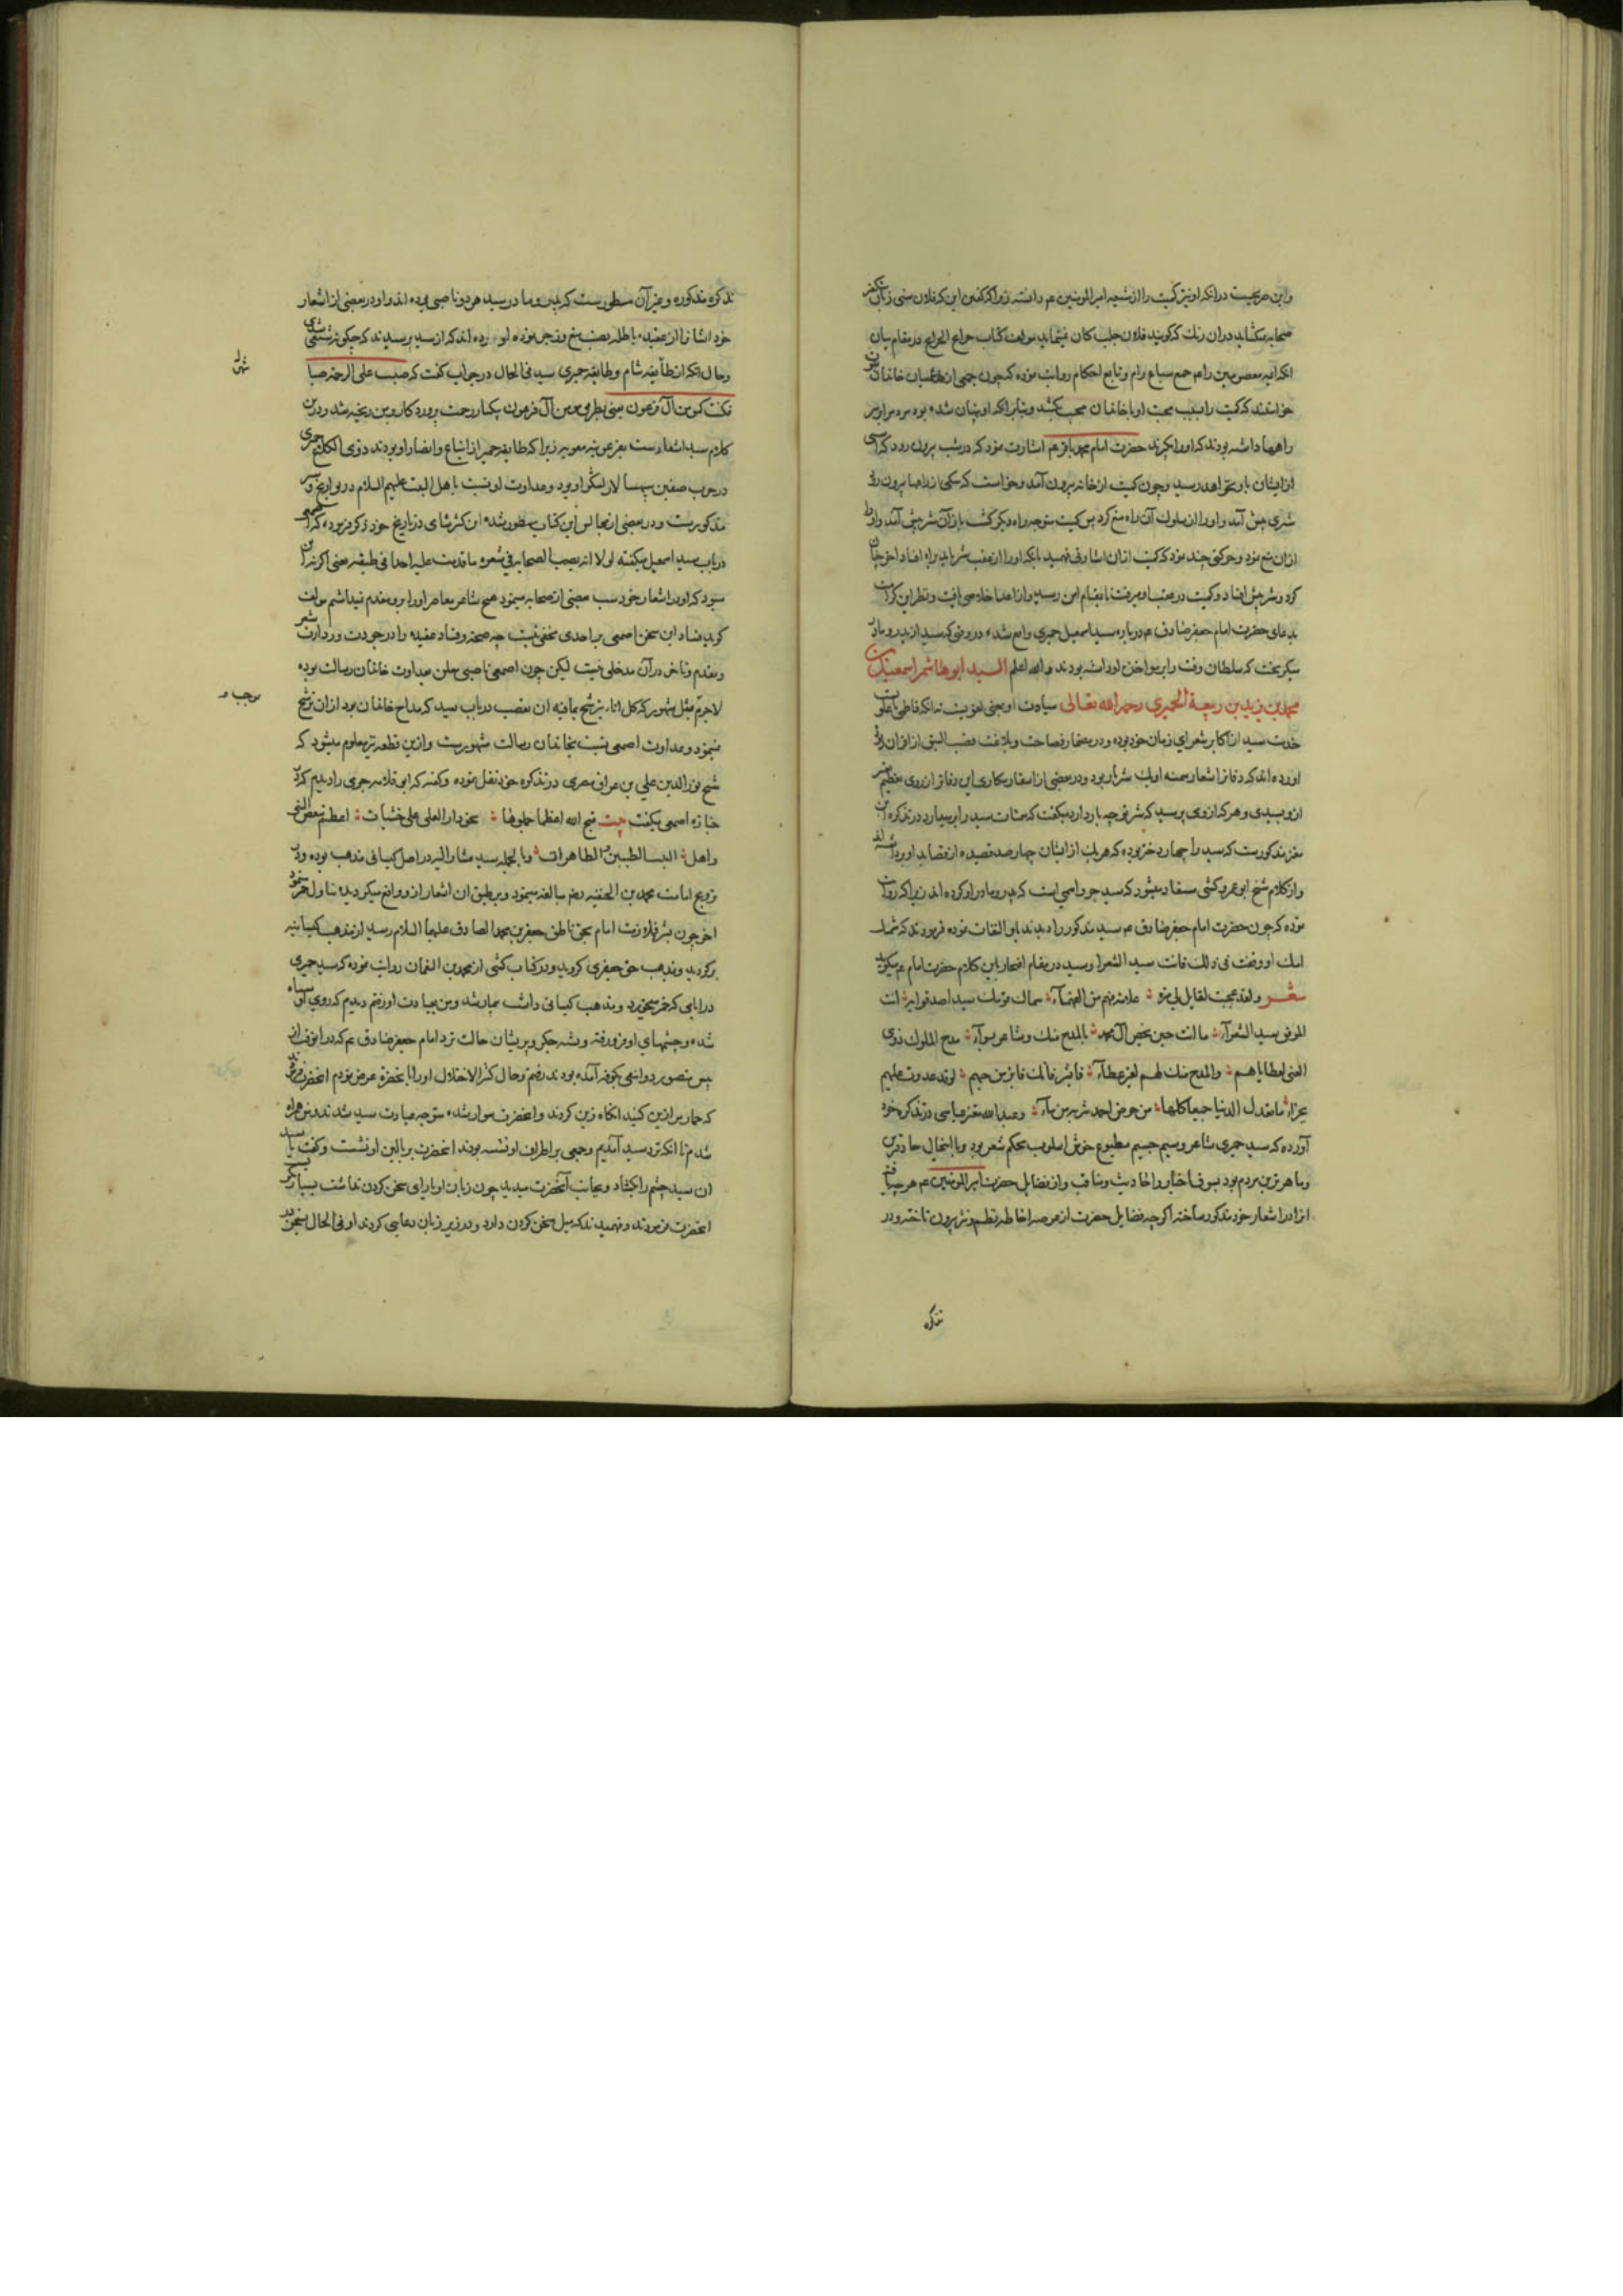 واین صریحست در انکه او نیز کمیت را از شیعه امیر المومنین عم دانسته زیرا که گفتن این که فلان سنی زبان بتکفیر
صحابه میکشاید در آن رنک که گویند فلان جلب کان میشاید مولف کتاب خرایج الجرایح در مقام بیان
انکه ایمه معصومین را عم جمیع سباع رام و تابع احکام روایت نموده که چون جمعی از ظاغیان خاندان
خواستند که کمیت را بسبب محبت او با خاندان بکشند و بنابرانکه او پنهان شده بود مردم را بر سر
راهها داشته بودند که او را بگیرند حضرت امام محمد باقر عم اشارت نمود که در شب بیرون رود که کسی
از ایشان باو نخواهد رسید و چون کمیت از خانه بیرون آمد و خواست که یکی از راهها بیرون رود
شیری پیش آمد و او را از سلوک آن راه منع کرد پس کمیت متوجه راه دیگر کشت باز آن شیر پیش آمد و او را
از ان منع نمود و حرکتی چند نمود که کمیت از ان اشارتی فهمید بانکه او را از عقب شیر باید براه افتاد اخر چنان
کرد و شیر پیش افتاد و کمیت در عقب او میرفت تا بمقام امن رسید و از اعدا خلاصی یافت و نظیر این کرامت
بدعای حضرت امام جعفر صادق عم درباره سید اسمعیل حمیری واقع شده در وقتی که سید از پدر و مادر
میگریخت که سلطان وقت را بر مواخذه او داشته بودند والله اعلم السید ابو هاشم اسمعیل بن
محمد بن یزید بن ربیعة الحمیری رحمه الله تعالی سیادت او بمعنی لغویست نه انکه فاطمی یا علویست
خدمت سید از اکابر شعرای زمان خود بوده و در مضمار فصاحت و بلاغت قصب السبق از اقران ربوده
اورده اند که دفاتر اشعار میمنه او یک شتر بار بود و در بعضی از اسفار مکاری این دفاتر از روی تعظیم
از و پرسیدی و هر که از وی پرسید که شتر تو چه بار دارد میگفت که میمیات سید را بر میدارد در تذکره ابن
معتز مذکورست که سید را چهار دختر بوده که هر یک از ایشان چهار صد قصیده از قصاید او یاد داشته اند
و از کلام شیخ ابو عمرو کشی مستفاد میشود که سید جزو اسمی است که پدر و مادر او کرده اند زیرا که روایت
نموده که چون حضرت امام جعفر صادق عم سید مذکور را دیدند باو التفات نموده فرمودند که سمتک
امک او وفقت فی ذلک فانت سید الشعرا و سید در مقام افتخار باین کلام حضرت امام عم میگوید
شعر ولقد عجبت لقایل لی مرة علامة فهم من الفهماء سماک قومک سیدا صدقوا به انت
الموفق سید الشعراء ما انت حین تخص ال محمد بالمدح منک و شاعر بسواء مدح الملوک ذوی
الغنی لعطایاهم والمدح منک لهم لغیر عطاء فابشر فانک فایز من حبهم لو قد غدوت علیهم
بجزاء ما تعدل الدنیا جمیعا کلها من حوض احمد شربة من ماء و عبد الله معتز عباسی در تذکره خود
آورده که سید حمیری شاعر وسیم جسیم مطبوع خوش اسلوب محکم شعر بود و با انحال حاذق ترین
و ماهر ترین مردم بود بسوق اخبار و احادیث و مناقب و از فضایل حضرت امیر المومنین عم هر چه یافته
انرا در اشعار خود مذکور ساخته اگر چه فضایل حضرت از عرصه احاطه نظم و نثر بیرون تاخته و در
تذکره
تذکره مذکوره و غیر آن مسطورست که پدر و مادر سید هر دو ناصبی بوده اند و او در بعضی از اشعار
خود ایشانرا از عقیده باطله نصب منع و زجر نموده اورده اند که از سید پرسیدند که چگونه تو شیعی شدی
و حال انکه از طایفه شام و طایفه حمیری سید فی الحال در جواب گفت که صبت علی الرحمة صبا
فکنت کمومن آل فرعون یعنی بطریق مومن آل فرعون یکبار رحمت پروردگار بر من ریخته شد و درین
کلام سید اشعارست بفرعونیه معویه زیرا که طایفه حمیر از اتباع و انصار او بودند ذوی الکلاع حمیری
در حرب صفین سپهسالار لشکر او بود و عداوت او نسبت باهل البیت علیهم السلام در تواریخ و سیر
مذکورست و در بعضی از مجالس این کتاب مسطور شده ابن کثیر شامی در تاریخ خود ذکر نموده که اصمعی
در باب سید اسمعیل میگفته لو لا انه یسب الصحابه فی شعره ما قدمت علیه احدا فی طبقته یعنی اگر نه آن
میبود که او در اشعار خود سب بعضی از صحابه مینمود هیچ شاعر معاصر او را بر و مقدم نمیداشتم مولف
گوید فساد این سخن اصمعی بر احدی مخفی نیست چه صحت و فساد عقیده را در جودت و رداءت شعر
و تقدم و تاخر در آن مدخلی نیست لیکن چون اصمعی ناصبی معلن بعداوت خاندان رسالت بوده
لاجرم مثل مشهور که کل اناء یترشح بما فیه ان تعصب در باب سید که مداح خاندان بود از ان ترشح
مینمود و عداوت اصمعی نسبت بخاندان رسالت مشهورست و ازین قطعه نیز معلوم میشود که
شیخ نور الدین علی بن عراق مصری در تذکره خود نقل نموده و گفته که ابو قلابه جرمی را دیدم که در
جنازه اصمعی میگفت بیت قبح الله اعظما حملوها نحو دار البلی علی خشبات اعظم تبغض النبی
واهل البیت الطیبین الطاهرات و بالجمله سید مشار الیه در اصل کیسانی مذهب بوده و در
ترویج امامت محمد بن الحنفیه رضه مبالغه مینمود و بر طبق ان اشعار از و واقع میگردید و تناول خمر مینمود
اخر چون بشرف ملازمت امام بحق ناطق جعفر بن محمد الصادق علیهما السلام رسید از مذهب کیسانیه
برگردید و مذهب حق جعفری گروید و در کتاب کشی از محمد بن النعمان روایت نموده که سید حمیری
در ایامی که خمر میخورد و مذهب کیسانی داشت بیمار شد و من بعیادت او رفتم دیدم که روی او سیاه
شده و چشمهای او فرو رفته و تشنه جگر و پریشان حالت نزد امام جعفر صادق عم که در انوقت از
پیش منصور دوانیقی بکوفه آمده بودند رفتم و حال کثیر الاختلال او را بانحضرة عرض نمودم انحضرت فرمودند
که حمار مرا زین کنید انگاه زین کردند و انحضرت سوار شده متوجه عیادت سید شدند و من همراه
شدم تا انکه نزد سید آمدیم و جمعی بر اطراف او نشسته بودند انحضرت بر بالین او نشست و گفت یا سید
ان سید چشم را بکشاد و بجانب آنحضرت میدید چون زبان او یارای سخن کردن نداشت بسیار بگریست
انحضرت فرمودند و فهمیدند که میل سخن کردن دارد و در زیر زبان دعایی کردند او فی الحال بسخن در
موجب